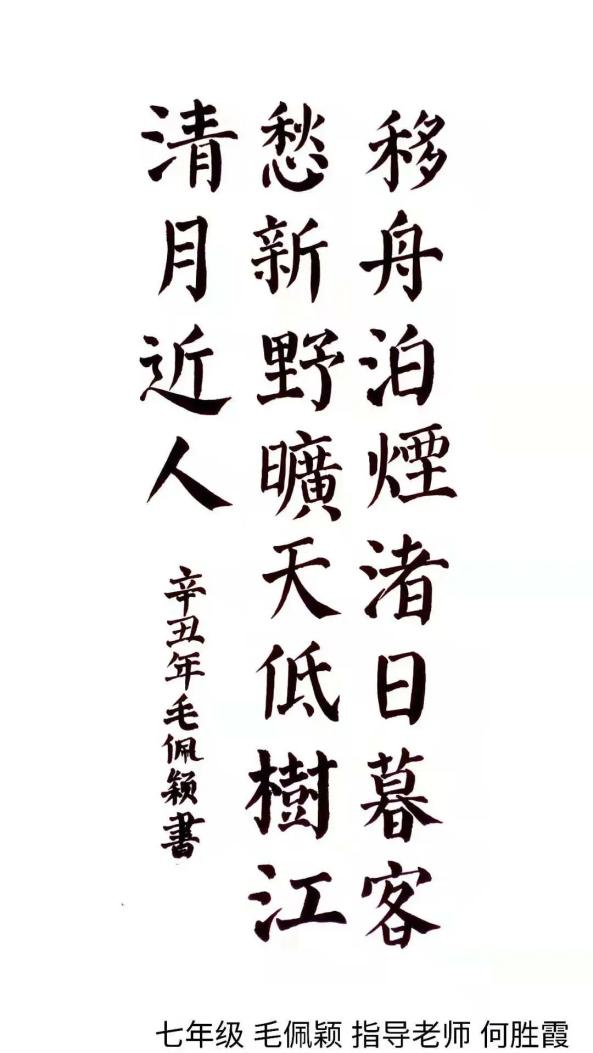 移舟泊煙渚日暮客
愁新野曠天低樹江
清月近人
辛丑年毛佩颖書
七年级 毛佩颖 指导老师 何胜霞